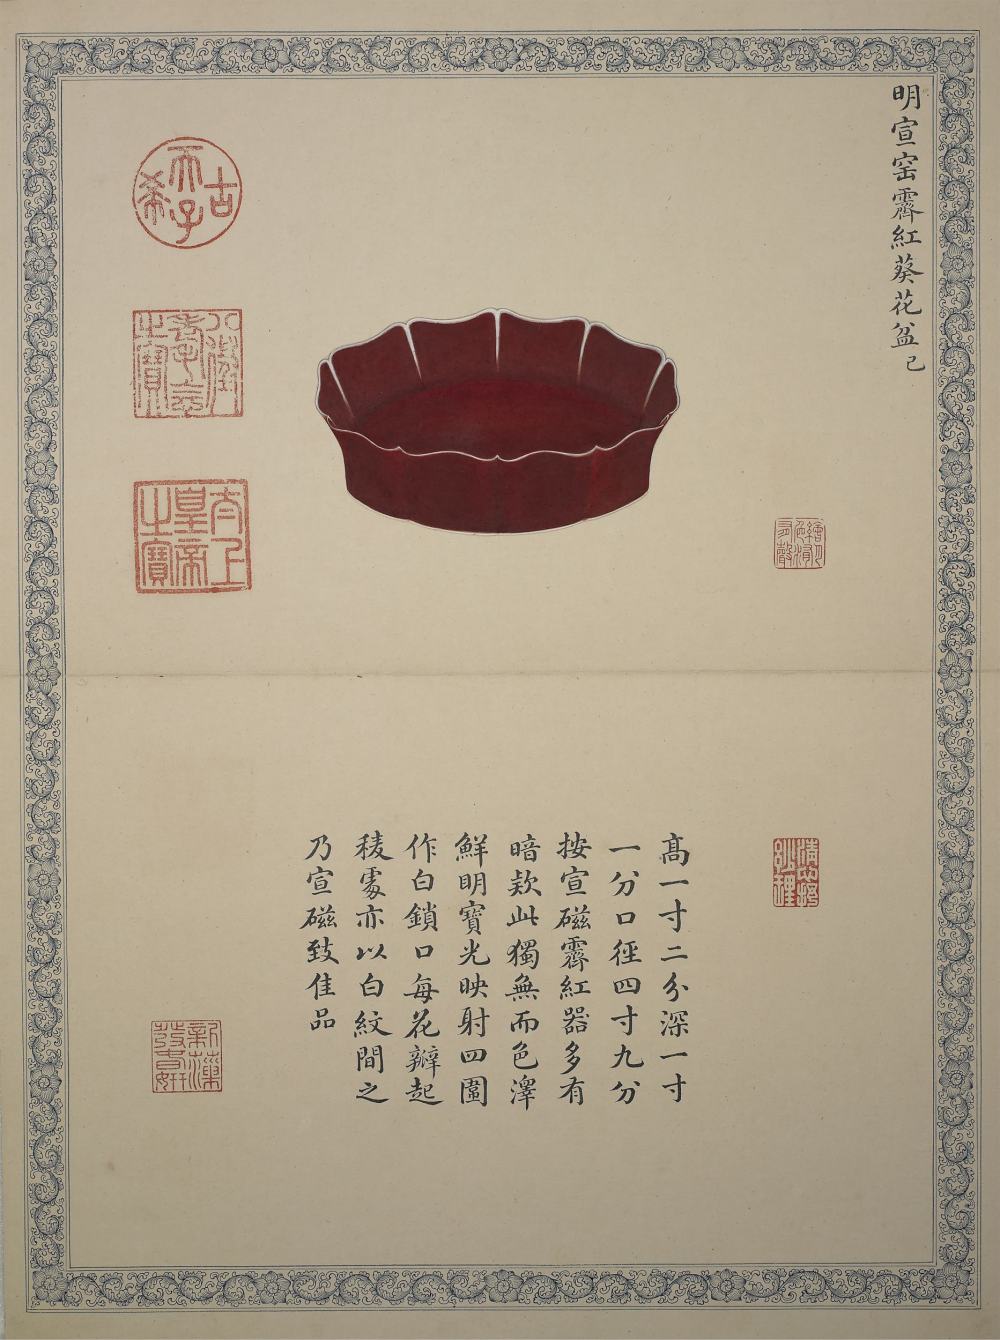 明宣窑霽紅葵花盆 己
古希天子
八徵耄念之寶
太上皇帝之寶
高一寸二分深一寸
一分口徑四寸九分
按宣磁霽紅器多有
暗款此獨無而色澤
鮮明寶光映射四圍
作白鎖口每花瓣起
稜處亦以白紋間之
乃宣磁致佳品